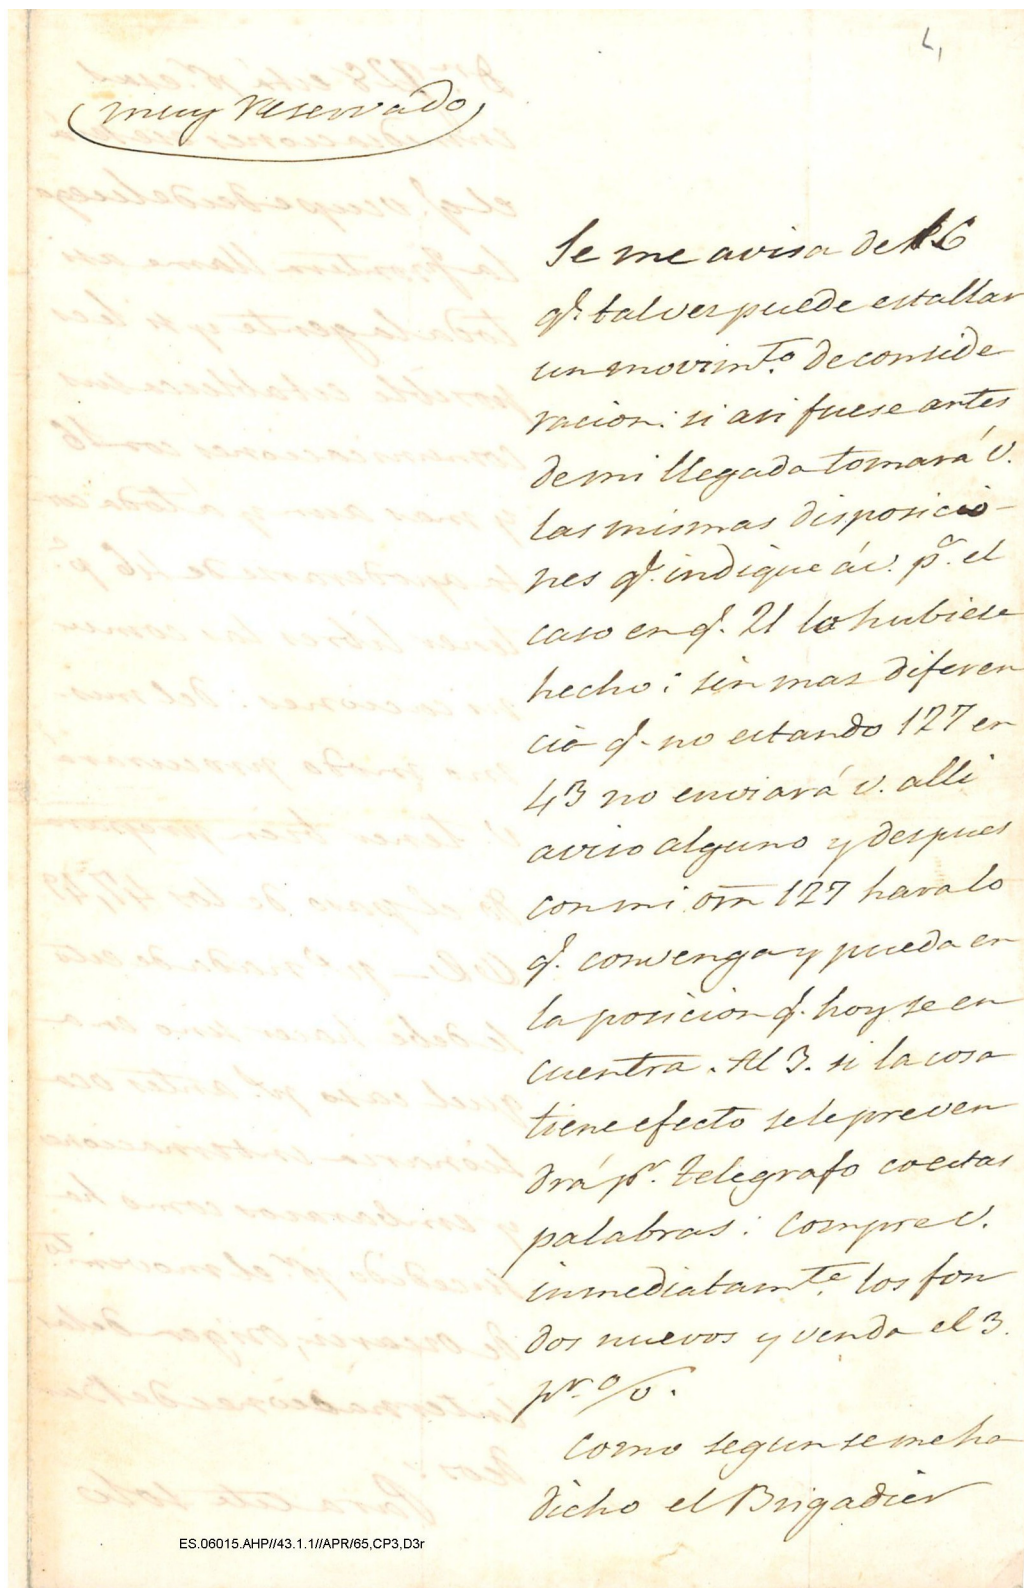 4
muy reservado
Se me avisa de 16
q.e tal vez puede estallar
un movim.to de conside
racion: si asi fuese antes
de mi llegada tomará v.
las mismas disposicio-
nes q.e indique á v. p.a el
caso en q.e 21 lo hubiese
hecho: sin mas diferen
cia q.e no estando 127 en
43 no enviará v. alli
aviso alguno y despues
con mi orn 127 hara lo
q.e convenga y pueda en
la posicion q.e hoy se en
cuentra. Al 3. si la cosa
tiene efecto se le preven
drá p.r telegrafo co estas
palabras: compre v.
inmediatam.te los fon
dos nuevos y venda el 3.
p.r o/o.
Como segun se me ha
dicho el Brigadier
ES.06015.AHP//43.1.1//APR/65,CP3,D3r